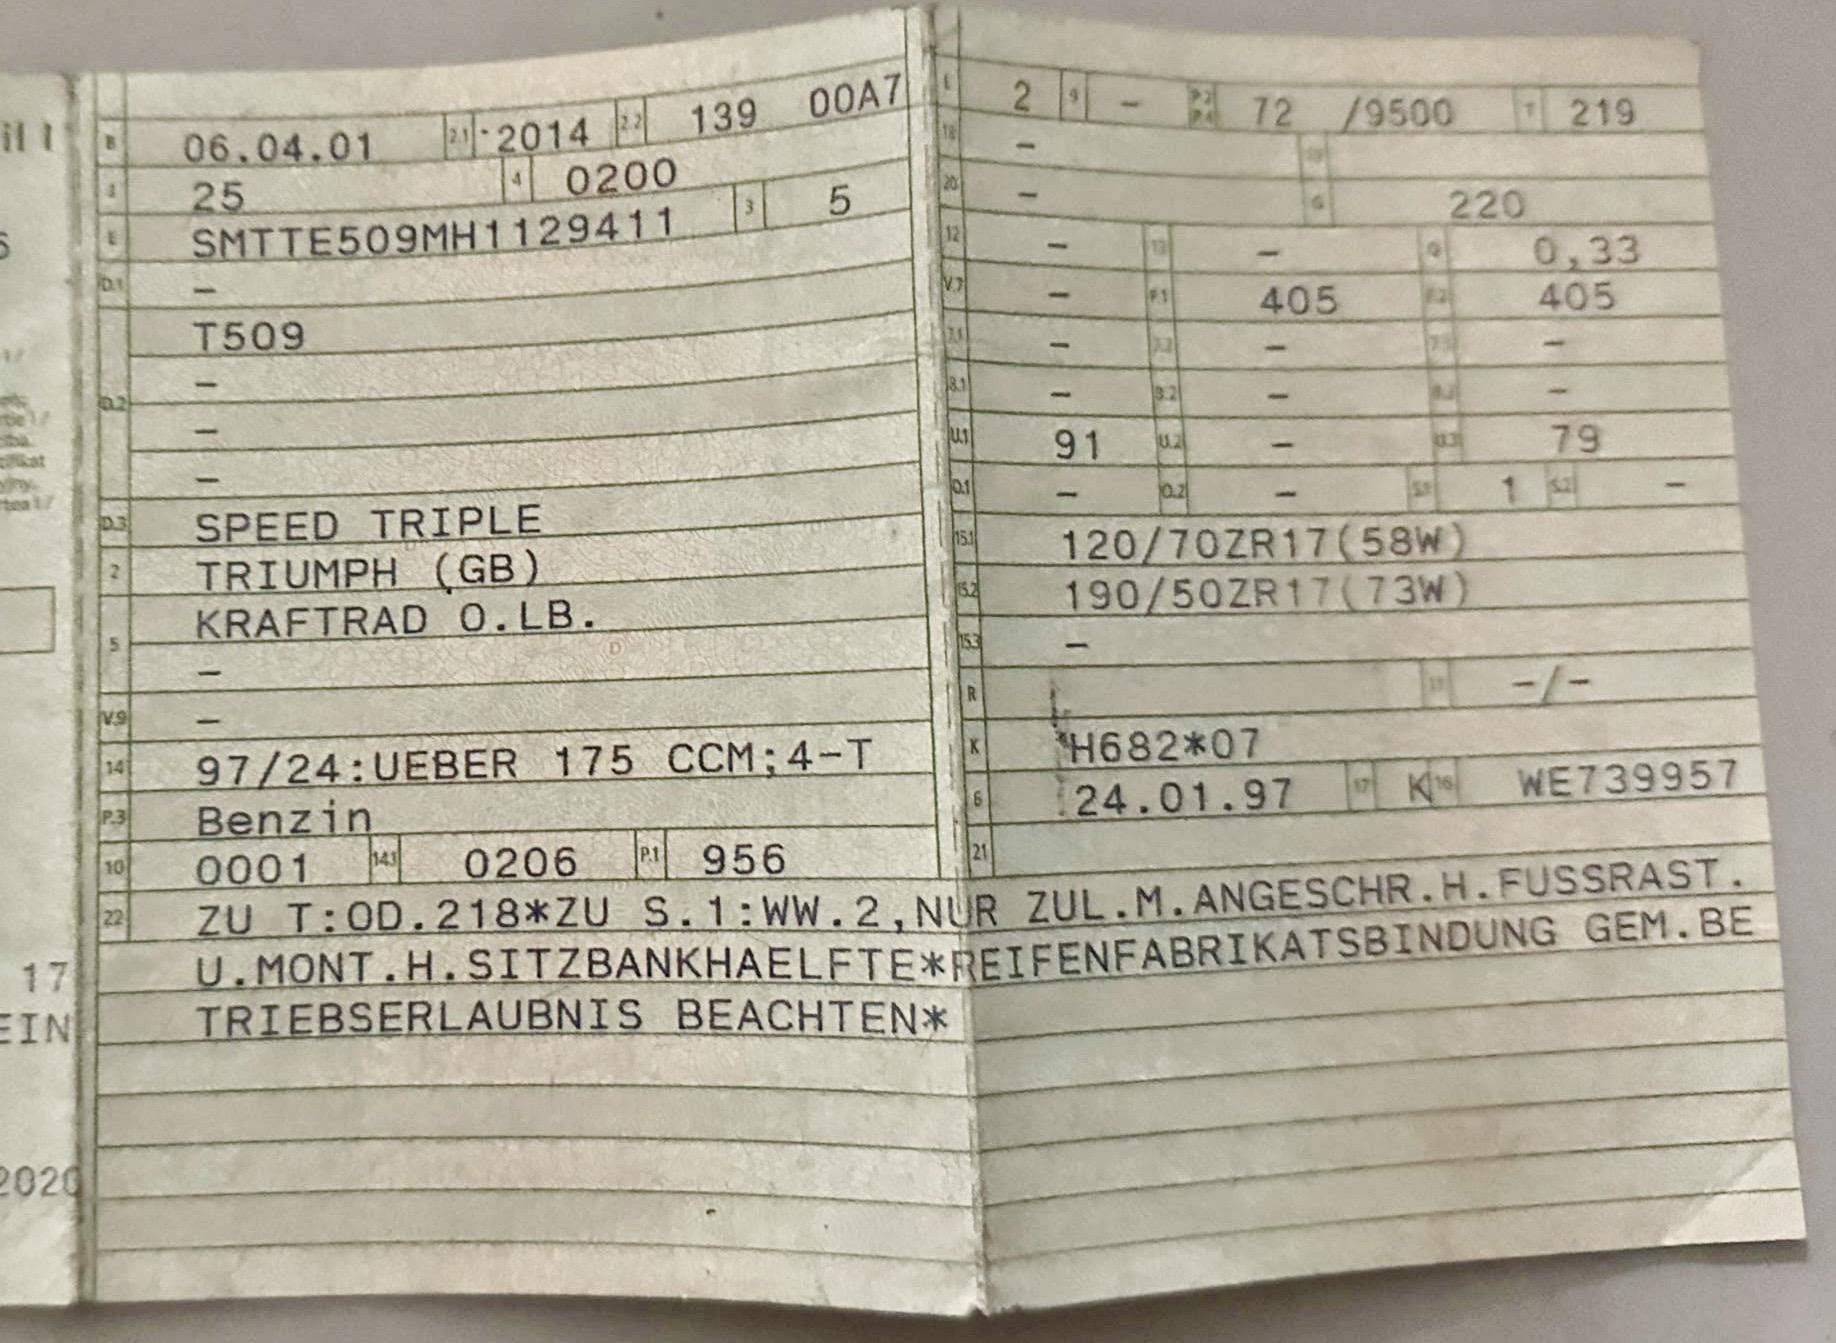 il I
B 06.04.01 2.1 2014 2.2 139 00A7
J 25 4 0200
E SMTTE509MH1129411 3 5
D.1 -
T509
-
D.2 -
-
D.3 SPEED TRIPLE
2 TRIUMPH (GB)
5 KRAFTRAD O.LB.
-
V.9 -
14 97/24:UEBER 175 CCM;4-T
P.3 Benzin
10 0001 14.1 0206 P.1 956
L 2 9 - P.2 P.4 72 /9500 T 219
18 - 19
20 - G 220
12 - 13 - Q 0,33
V.7 - F.1 405 F.2 405
7.1 - 7.2 - 7.3 -
8.1 - 8.2 - 8.3 -
U.1 91 U.2 - U.3 79
O.1 - O.2 - S.1 1 S.2 -
15.1 120/70ZR17(58W)
15.2 190/50ZR17(73W)
15.3 -
R 11 -/-
K H682*07
6 24.01.97 17 K 16 WE739957
21
22 ZU T:OD.218*ZU S.1:WW.2,NUR ZUL.M.ANGESCHR.H.FUSSRAST.
U.MONT.H.SITZBANKHAELFTE*REIFENFABRIKATSBINDUNG GEM.BE
TRIEBSERLAUBNIS BEACHTEN*
17
EIN
2020